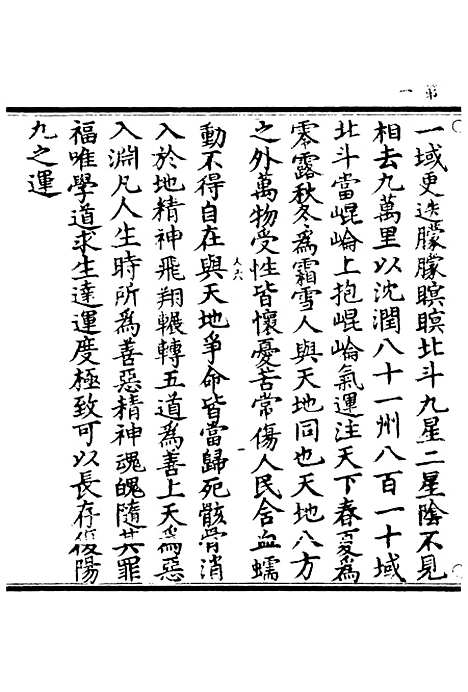 第一
一域更迭朦朦瞑瞑北斗九星二星陰不見
相去九萬里以沈潤八十一州八百一十域
北斗當崐崘上抱崐崘氣運注天下春夏爲
零露秋冬爲霜雪人與天地同也天地八方
之外萬物受性皆懷憂苦常傷人民含血蠕
動不得自在與天地爭命皆當歸死骸骨消
入於地精神飛翔輾轉五道爲善上天爲惡
入淵凡人生時所爲善惡精神魂魄隨其罪
福唯學道求生達運度極致可以長存復陽
九之運